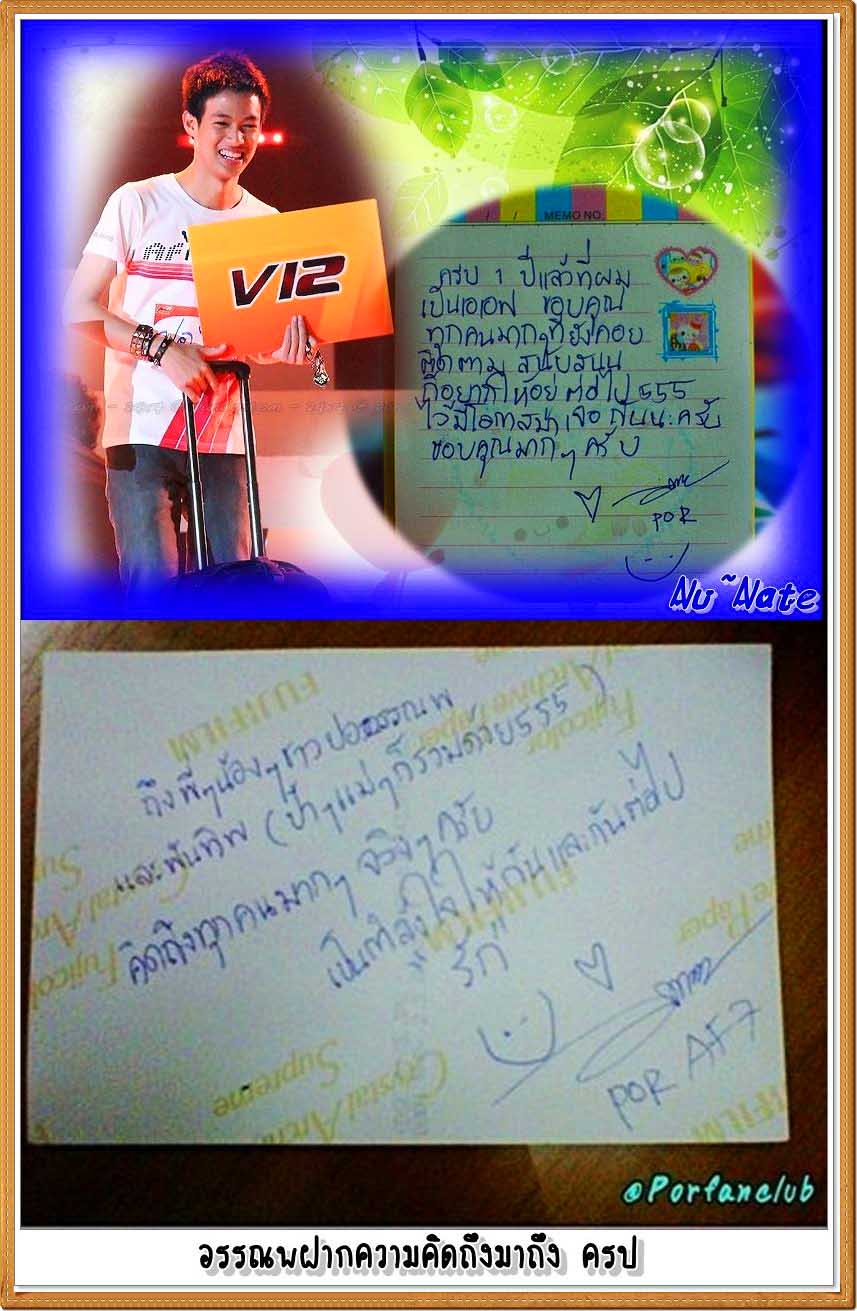 AF
V12
MEMO NO.
ครบ 1 ปีแล้วที่ผม
เป็นเอเอฟ ขอบคุณ
ทุกคนมากๆที่ยังคอย
ติดตาม สนับสนุน
ก็อยากให้อยู่ต่อไป 555
ไว้มีโอกาสมาเจอกันนะครับ
ขอบคุณมากๆ ครับ
POR
Nu~Nate
ถึงพี่ๆน้องๆชาวปออรรณพ
และพันทิพ (ป้าๆแม่ๆก็รวมด้วย555)
คิดถึงทุกคนมากๆ จริงๆครับ
เป็นกำลังใจให้กันและกันต่อไป
"รัก"
POR AF7
FUJIFILM
Fujicolor
Crystal Archive Paper
Supreme
@Porfanclub
อรรณพฝากความคิดถึงมาถึง ครป